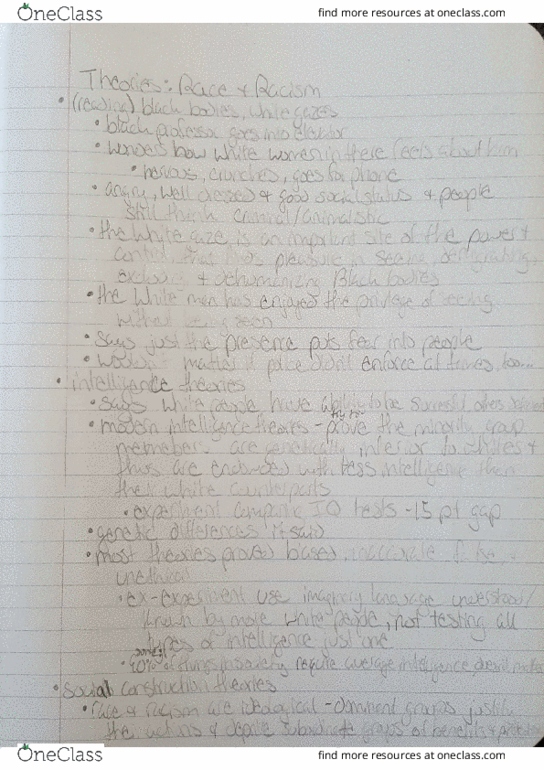 OneClass
find more resources at oneclass.com
Theories: Race & Racism
• (reading) black bodies, white gazes
• black professor goes into elevator
• wonders how white women in there feels about him
• nervous, crunches, goes for phone
• angry, well dressed & good social status & people
still think criminal/animalistic
• the white gaze is an important site of the power &
control, that pleasure in seeing, denigrating,
& dehumanizing Black bodies
• the White man has enjoyed the privilege of seeing
without being seen
• says just the presence puts fear into people
police enforce at times, too...
• intelligence theories
• says white people have ability to be successful
• modern intelligence theories - try to prove the minority group
are genetically inferior to whites &
thus are endowed with less intelligence than
their white counterparts
• experiment compare IQ tests - 15 pt gap
• genetic differences it said
• most theories proved biased, inaccurate
unethical
• ex - experiment use imagery language understood/
known by more white people, not testing all
types of intelligence just one
of things in society require average intelligence, doesn't matter
• social construction theories
• race & racism are ideological - dominant groups justify
the actions & deprive subordinate groups of benefits &
OneClass
find more resources at oneclass.com